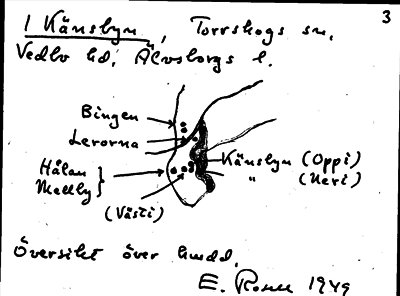 3
1 Känsbyn, Torrskogs sn,
Vedbo hd, Älvsborgs l.
Bingen
Lerorna
Känsbyn (Oppi)
" (Neri)
Hålan
Mellby
(Västi)
Översikt över
E. 1949